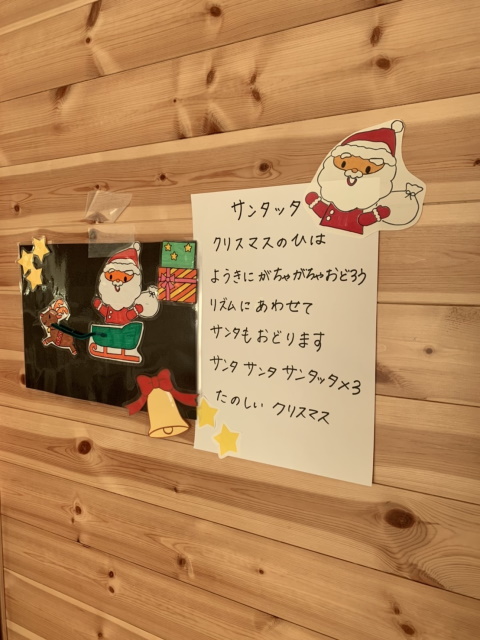 サンタッタ
クリスマスのひは
ようきにがちゃがちゃおどろう
リズムにあわせて
サンタもおどります
サンタ サンタ サンタッタ×3
たのしい クリスマス